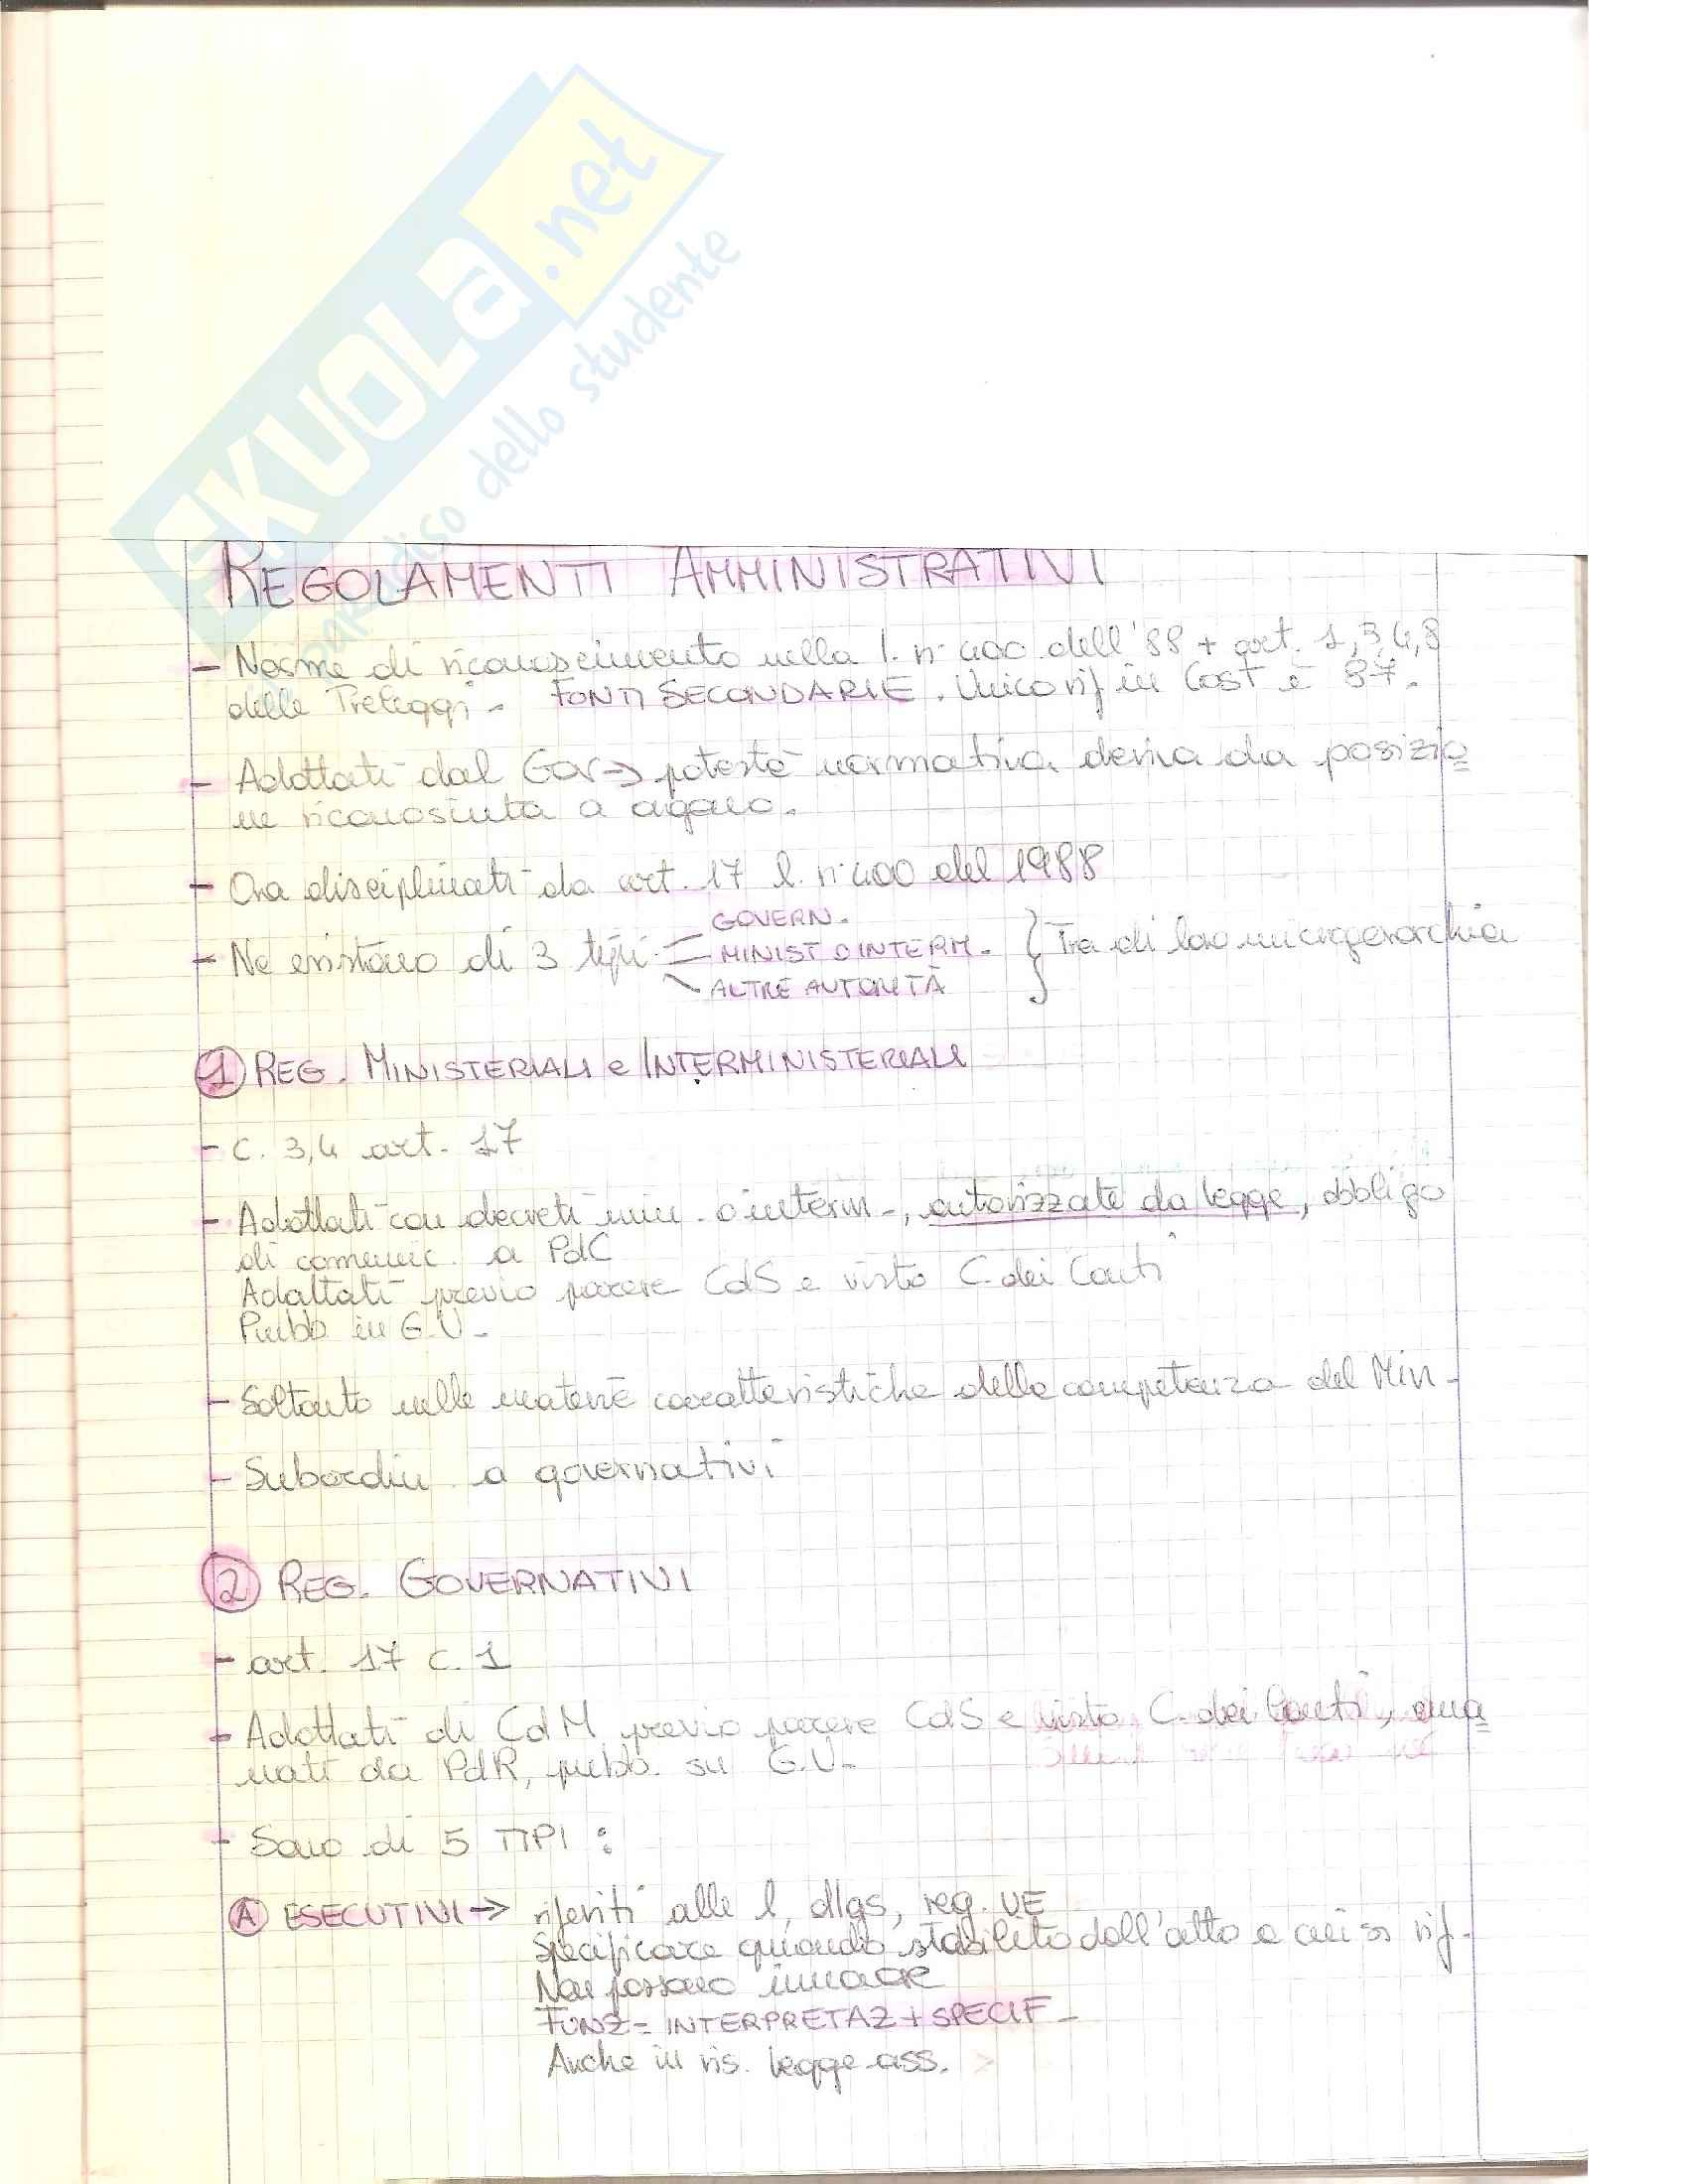 SKUOLA.net
paradiso dello studente
REGOLAMENTI AMMINISTRATIVI
- Norme di riconoscimento nella l. n° 400 dell'88 + art. 1, 3, 4, 8
delle Preleggi - FONTI SECONDARIE. Unico rif in Cost è 87.
- Adottati dal Gov → potestà normativa deriva da posizio
ne riconosciuta a organo.
- Ora disciplinati da art. 17 l. n° 400 del 1988
GOVERN.
- Ne esistono di 3 tipi MINIST O INTERM. } Tra di loro microgerarchia
ALTRE AUTORITÀ
1 REG. MINISTERIALI e INTERMINISTERIALI
- c. 3,4 art. 17
- Adottati con decreti min. o interm., autorizzate da legge, obbligo
di comunic. a PdC
Adottati previo parere CdS e visto C. dei Conti
Pubb in G.U.
- Soltanto nelle materie caratteristiche della competenza del Min.
- Subordin. a governativi
2 REG. GOVERNATIVI
- art. 17 c. 1
- Adottati di CdM previo parere CdS e visto C. dei Conti, ema
nati da PdR, pubb. su G.U.
- Sono di 5 TIPI :
A ESECUTIVI → riferiti alle l, dlgs, reg. UE
Specificare quando stabilito dall'atto a cui si rif.
Non possono innovare
FUNZ = INTERPRETAZ + SPECIF -
Anche in ris. legge ass.